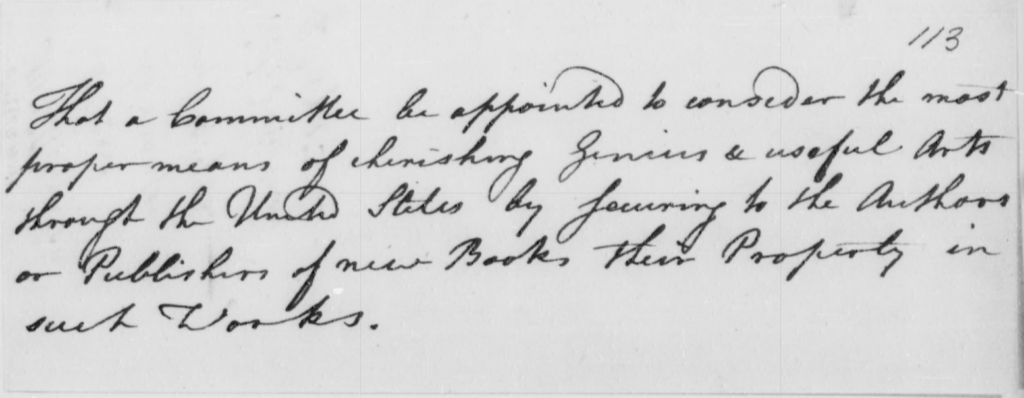 113
That a Committee be appointed to consider the most
proper means of cherishing Genius & useful Arts
through the United States by securing to the Authors
or Publishers of new Books their Property in
such Works.